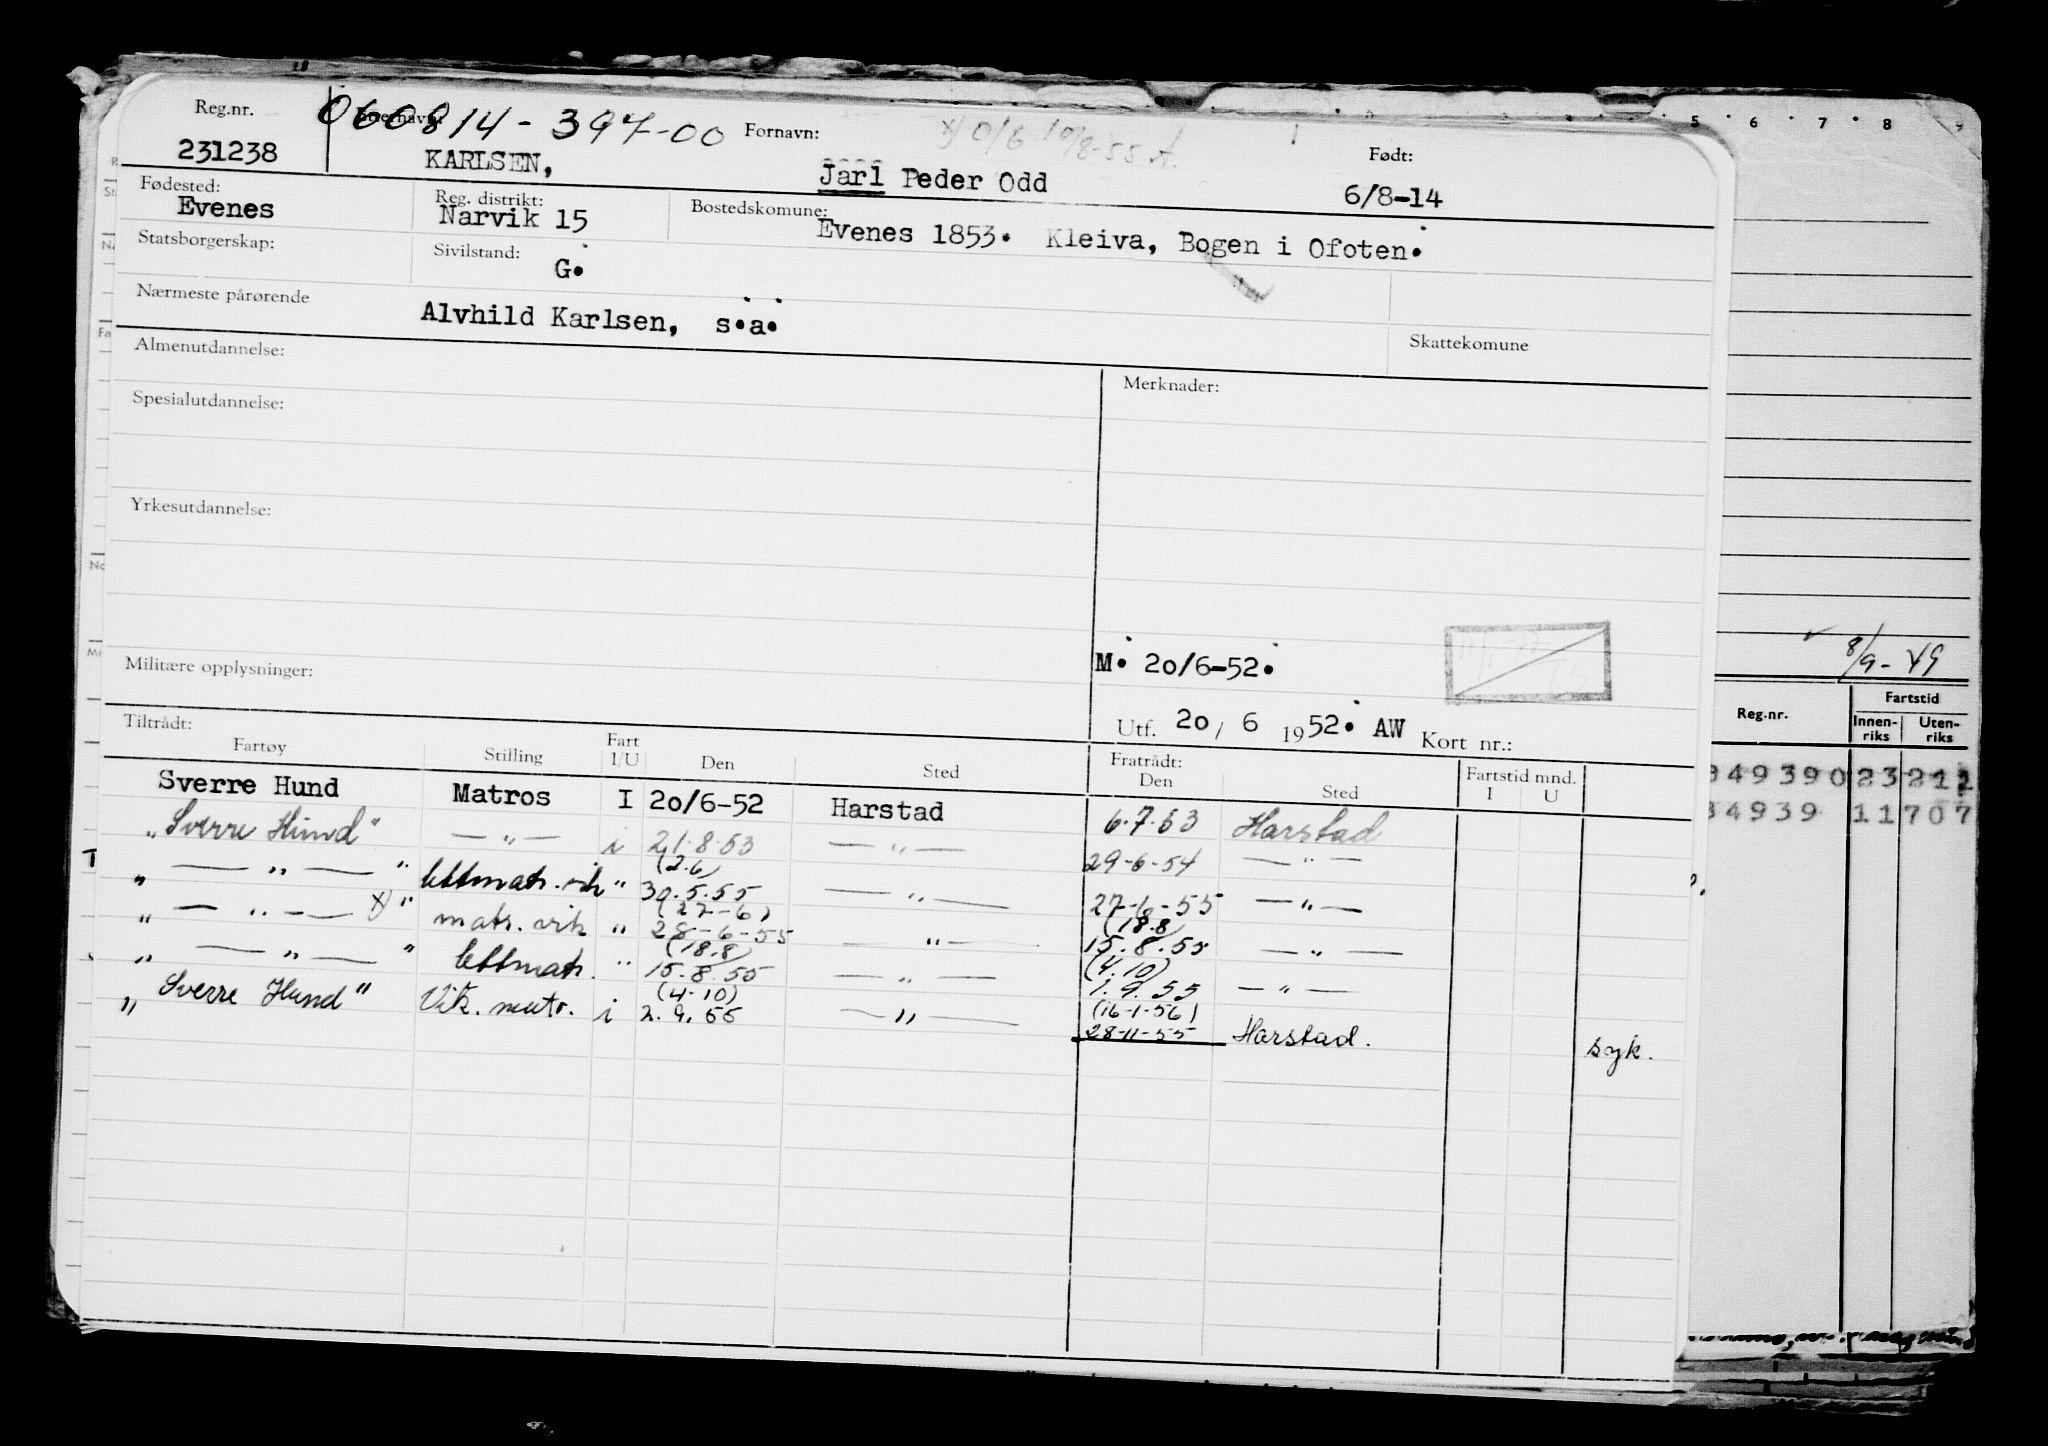 Reg.nr. Etternavn: 060814-397-00 Fornavn: x) 0/6 10/8-55 A. Født:
231238 KARLSEN, Jarl Peder Odd 6/8-14
Fødested: Reg. distrikt: Bostedskomune:
Evenes Narvik 15 Evenes 1853. Kleiva, Bogen i Ofoten.
Statsborgerskap: Sivilstand: G.
Nærmeste pårørende Alvhild Karlsen, s.a.
Skattekomune
Almenutdannelse:
Merknader:
Spesialutdannelse:
Yrkesutdannelse:
M. 20/6-52.
Militære opplysninger:
Utf. 20/ 6 1952. AW Kort nr.:
Tiltrådt: Fratrådt:
Fartøy Stilling Fart I/U Den Sted Den Sted Fartstid mnd. I U
Sverre Hund Matros I 20/6-52 Harstad 6.7.53 Harstad
"Sverre Hund" — " — i 21.8.53 — " — 29-6-54 — " —
(2.6)
" — " — " lettmatr. vik " 30.5.55 — " — 27-6-55 — " —
(27-6) (18.8)
" — " — x) " matr. vik " 28-6-55 — " — 15.8.55 — " —
(18.8) (4.10)
" — " — " lettmatr. " 15.8.55 — " — 1.9.55 — " —
(4-10) (16-1-56)
"Sverre Hund" Vik. matr. i 2.9.55 — " — 28-11-55 Harstad. syk.
5 6 7 8
8/9-49
Reg.nr. Fartstid
Innen-riks Uten-riks
349390 23 211
34939 11 707